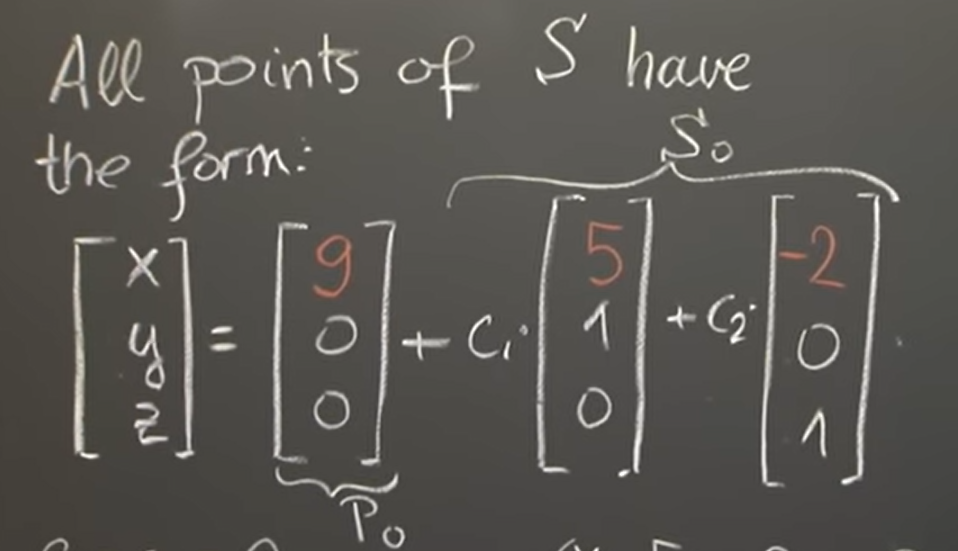 All points of S have
the form:
S₀
[x y z] = [9 0 0] + C₁· [5 1 0] + C₂· [-2 0 1].
P₀